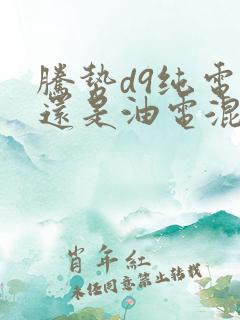 騰勢d9纯電
還是油電混
肖年紅
未经同意禁止转载